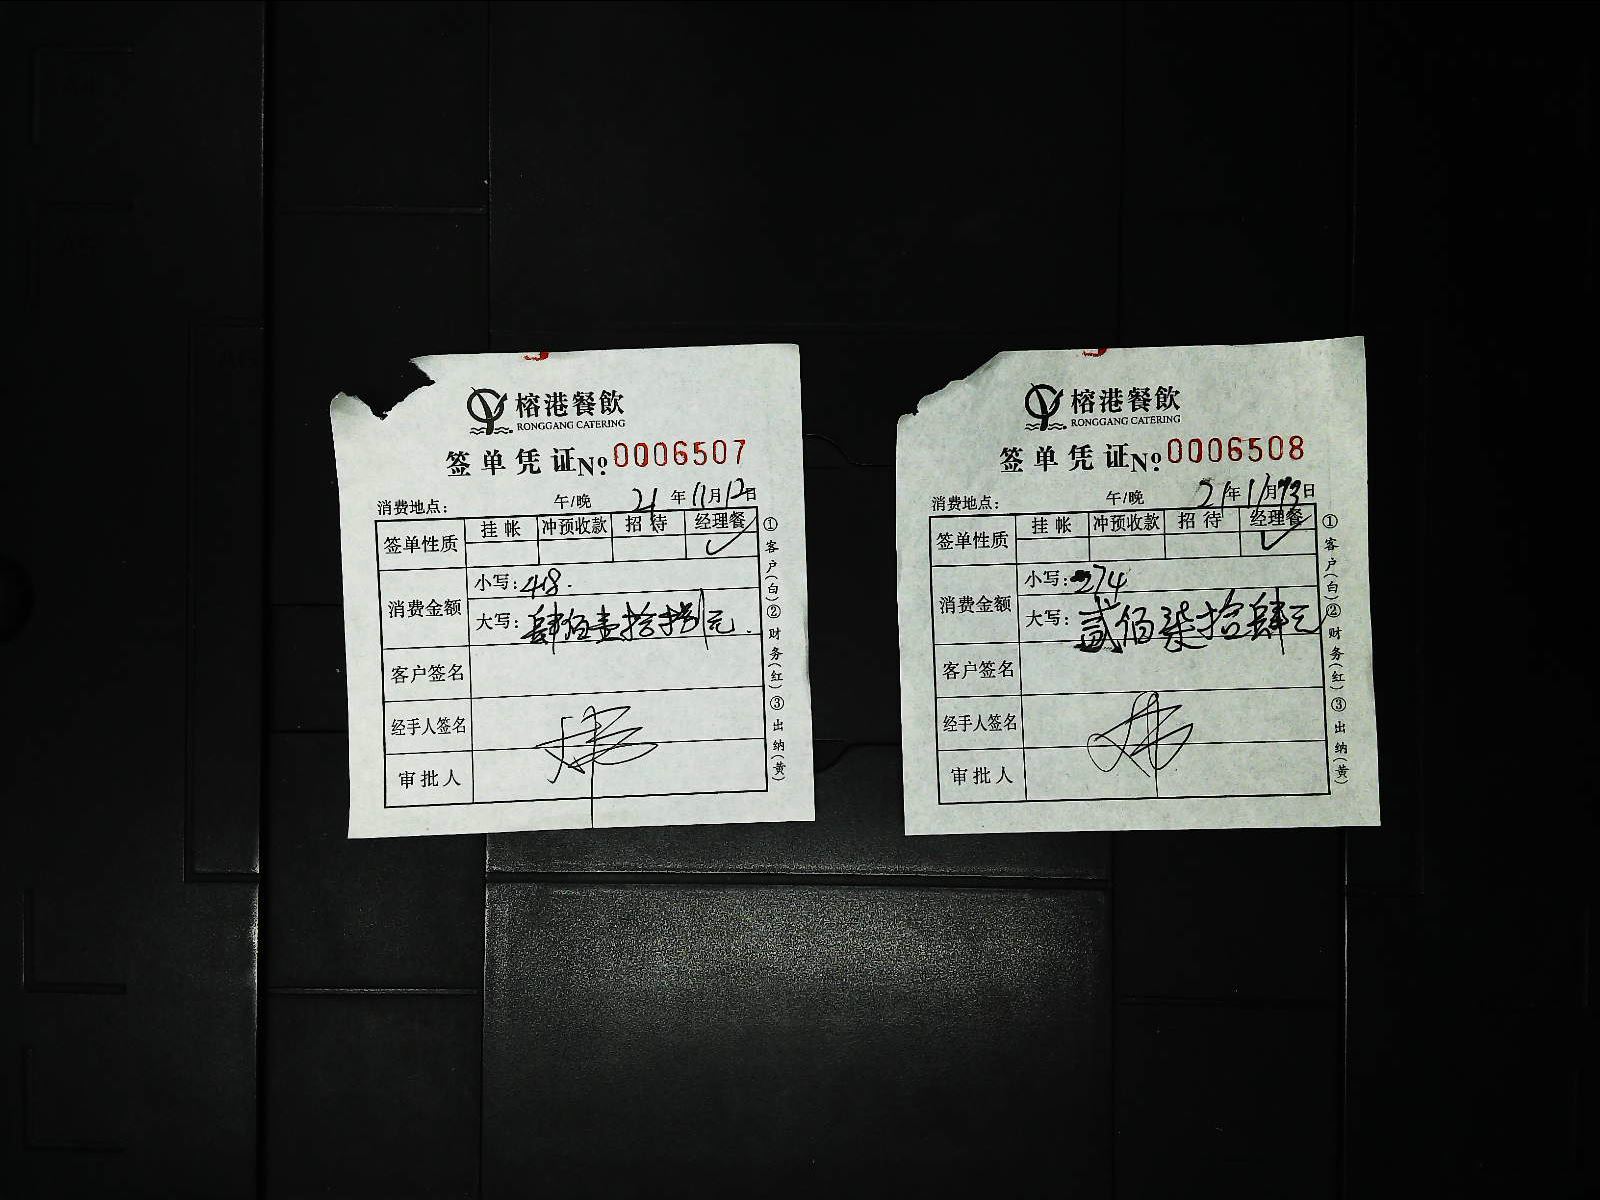 榕港餐飲
RONGGANG CATERING
签单凭证 № 0006507
消费地点： 午/晚 21年11月12日
签单性质 挂帐 冲预收款 招待 经理餐
✓
消费金额
小写：418.
大写：肆佰壹拾捌元.
客户签名
经手人签名
审批人
①客户(白)②财务(红)③出纳(黄)
榕港餐飲
RONGGANG CATERING
签单凭证 № 0006508
消费地点： 午/晚 21年11月13日
签单性质 挂帐 冲预收款 招待 经理餐
✓
消费金额
小写：274
大写：贰佰柒拾肆元
客户签名
经手人签名
审批人
①客户(白)②财务(红)③出纳(黄)